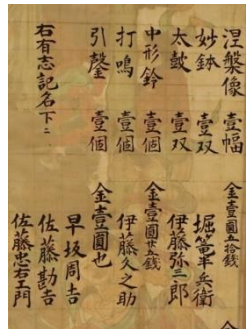 涅槃像 壹幅
妙鉢 壹双
太皷 壹双
中形鈴 壹個
打鳴 壹個
引鏧 壹個
右有志記名下ニ
金壹圓五拾錢
堀 軍兵衛
伊藤弥三郎
金壹圓廿五錢
伊藤久之助
金壹圓也
早坂周吉
佐藤勘吉
佐藤忠右エ門